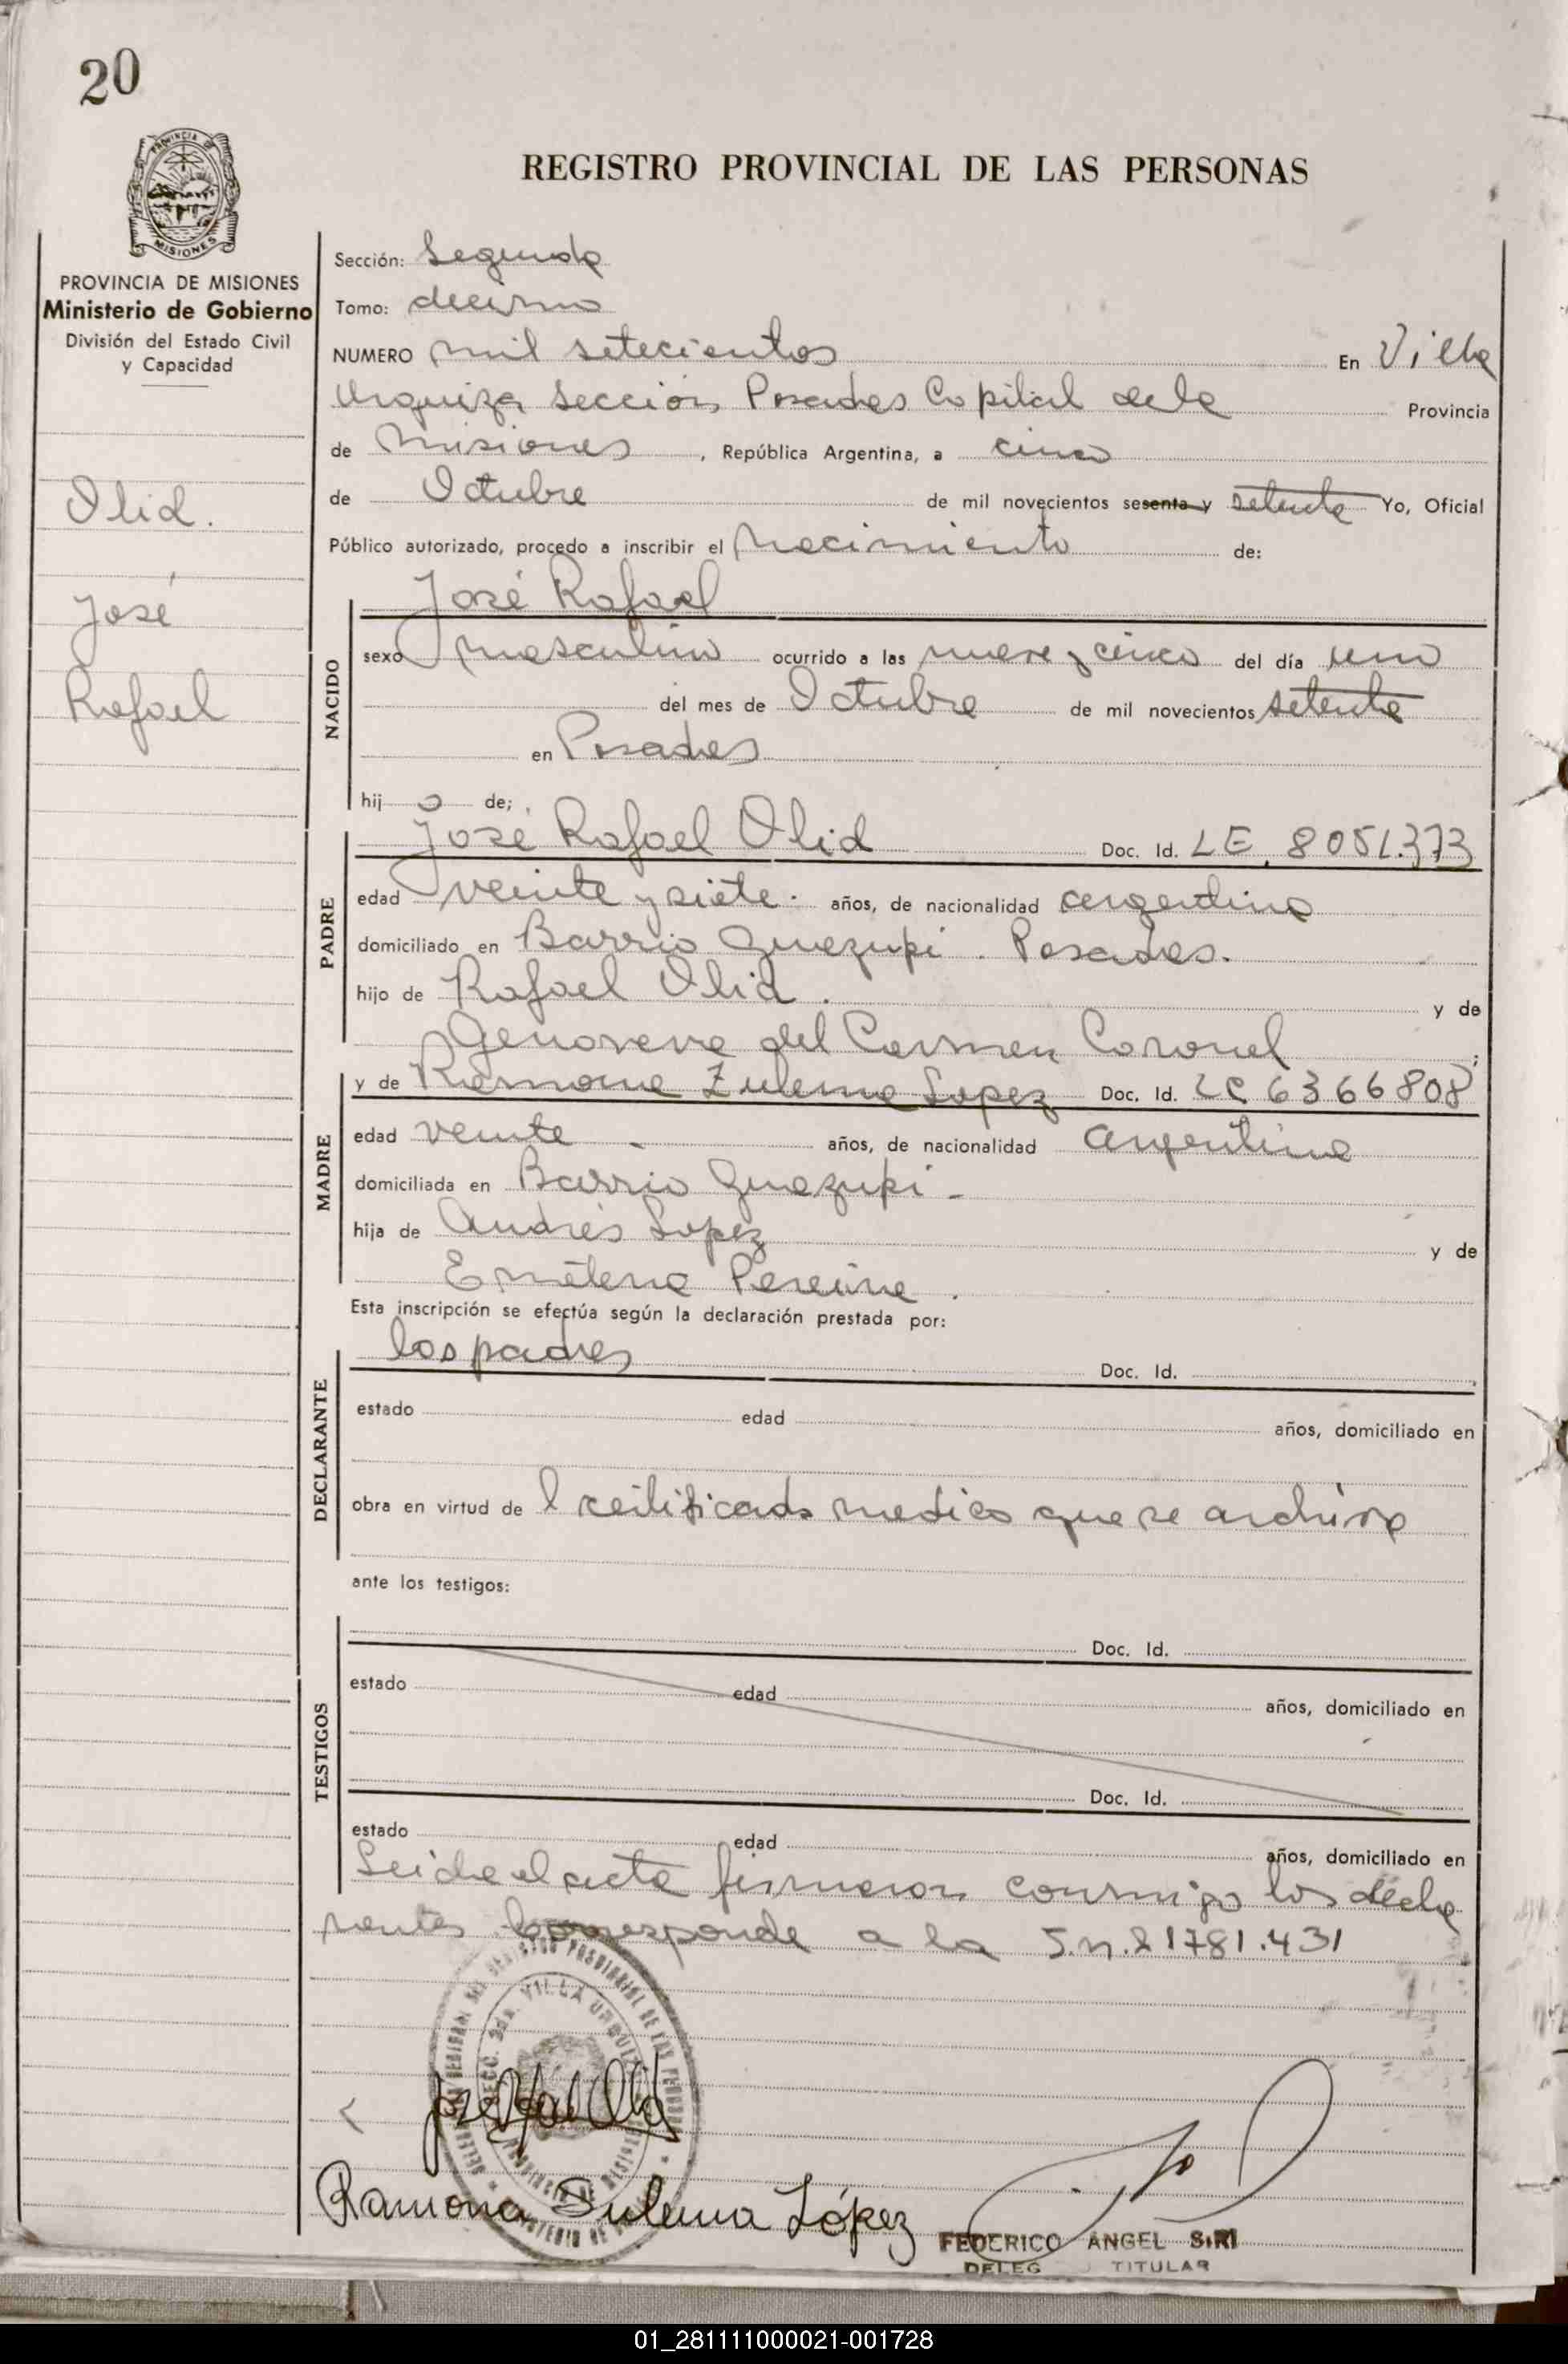 20
REGISTRO PROVINCIAL DE LAS PERSONAS
PROVINCIA DE MISIONES
PROVINCIA DE MISIONES
Ministerio de Gobierno
División del Estado Civil
y Capacidad
Olid.
José
Rafael
Sección: Segunda
Tomo: decimo
NUMERO mil setecientos En Villa
Urquiza Sección Posadas Capital de la Provincia
de Misiones, República Argentina, a cinco
de Octubre de mil novecientos sesenta y setenta Yo, Oficial
Público autorizado, procedo a inscribir el Nacimiento de:
José Rafael
NACIDO
sexo masculino ocurrido a las nueve y cinco del día uno
del mes de Octubre de mil novecientos setenta
en Posadas
hij o de;
PADRE
José Rafael Olid Doc. Id. LE. 8051.373
edad veinte y siete. años, de nacionalidad argentina
domiciliado en Barrio Guazupi. Posadas.
hijo de Rafael Olid. y de
Genoveva del Carmen Coronel;
MADRE
y de Ramona Zulema Lopez Doc. Id. LC 6366808
edad veinte - años, de nacionalidad argentina
domiciliada en Barrio Guazupi -
hija de Andrés Lopez y de
Emeteria Pereira.
Esta inscripción se efectúa según la declaración prestada por:
DECLARANTE
los padres Doc. Id.
estado edad años, domiciliado en
obra en virtud de l certificado medico que se archiva
ante los testigos:
TESTIGOS
Doc. Id.
estado edad años, domiciliado en
Doc. Id.
estado edad años, domiciliado en
Leida el acta firmaron conmigo los decla
rantes. Corresponde a la 21781.431
VILLA URQUIZA
Ramona Zulema López
FEDERICO ANGEL SIRI
DELEG TITULAR
01_281111000021-001728